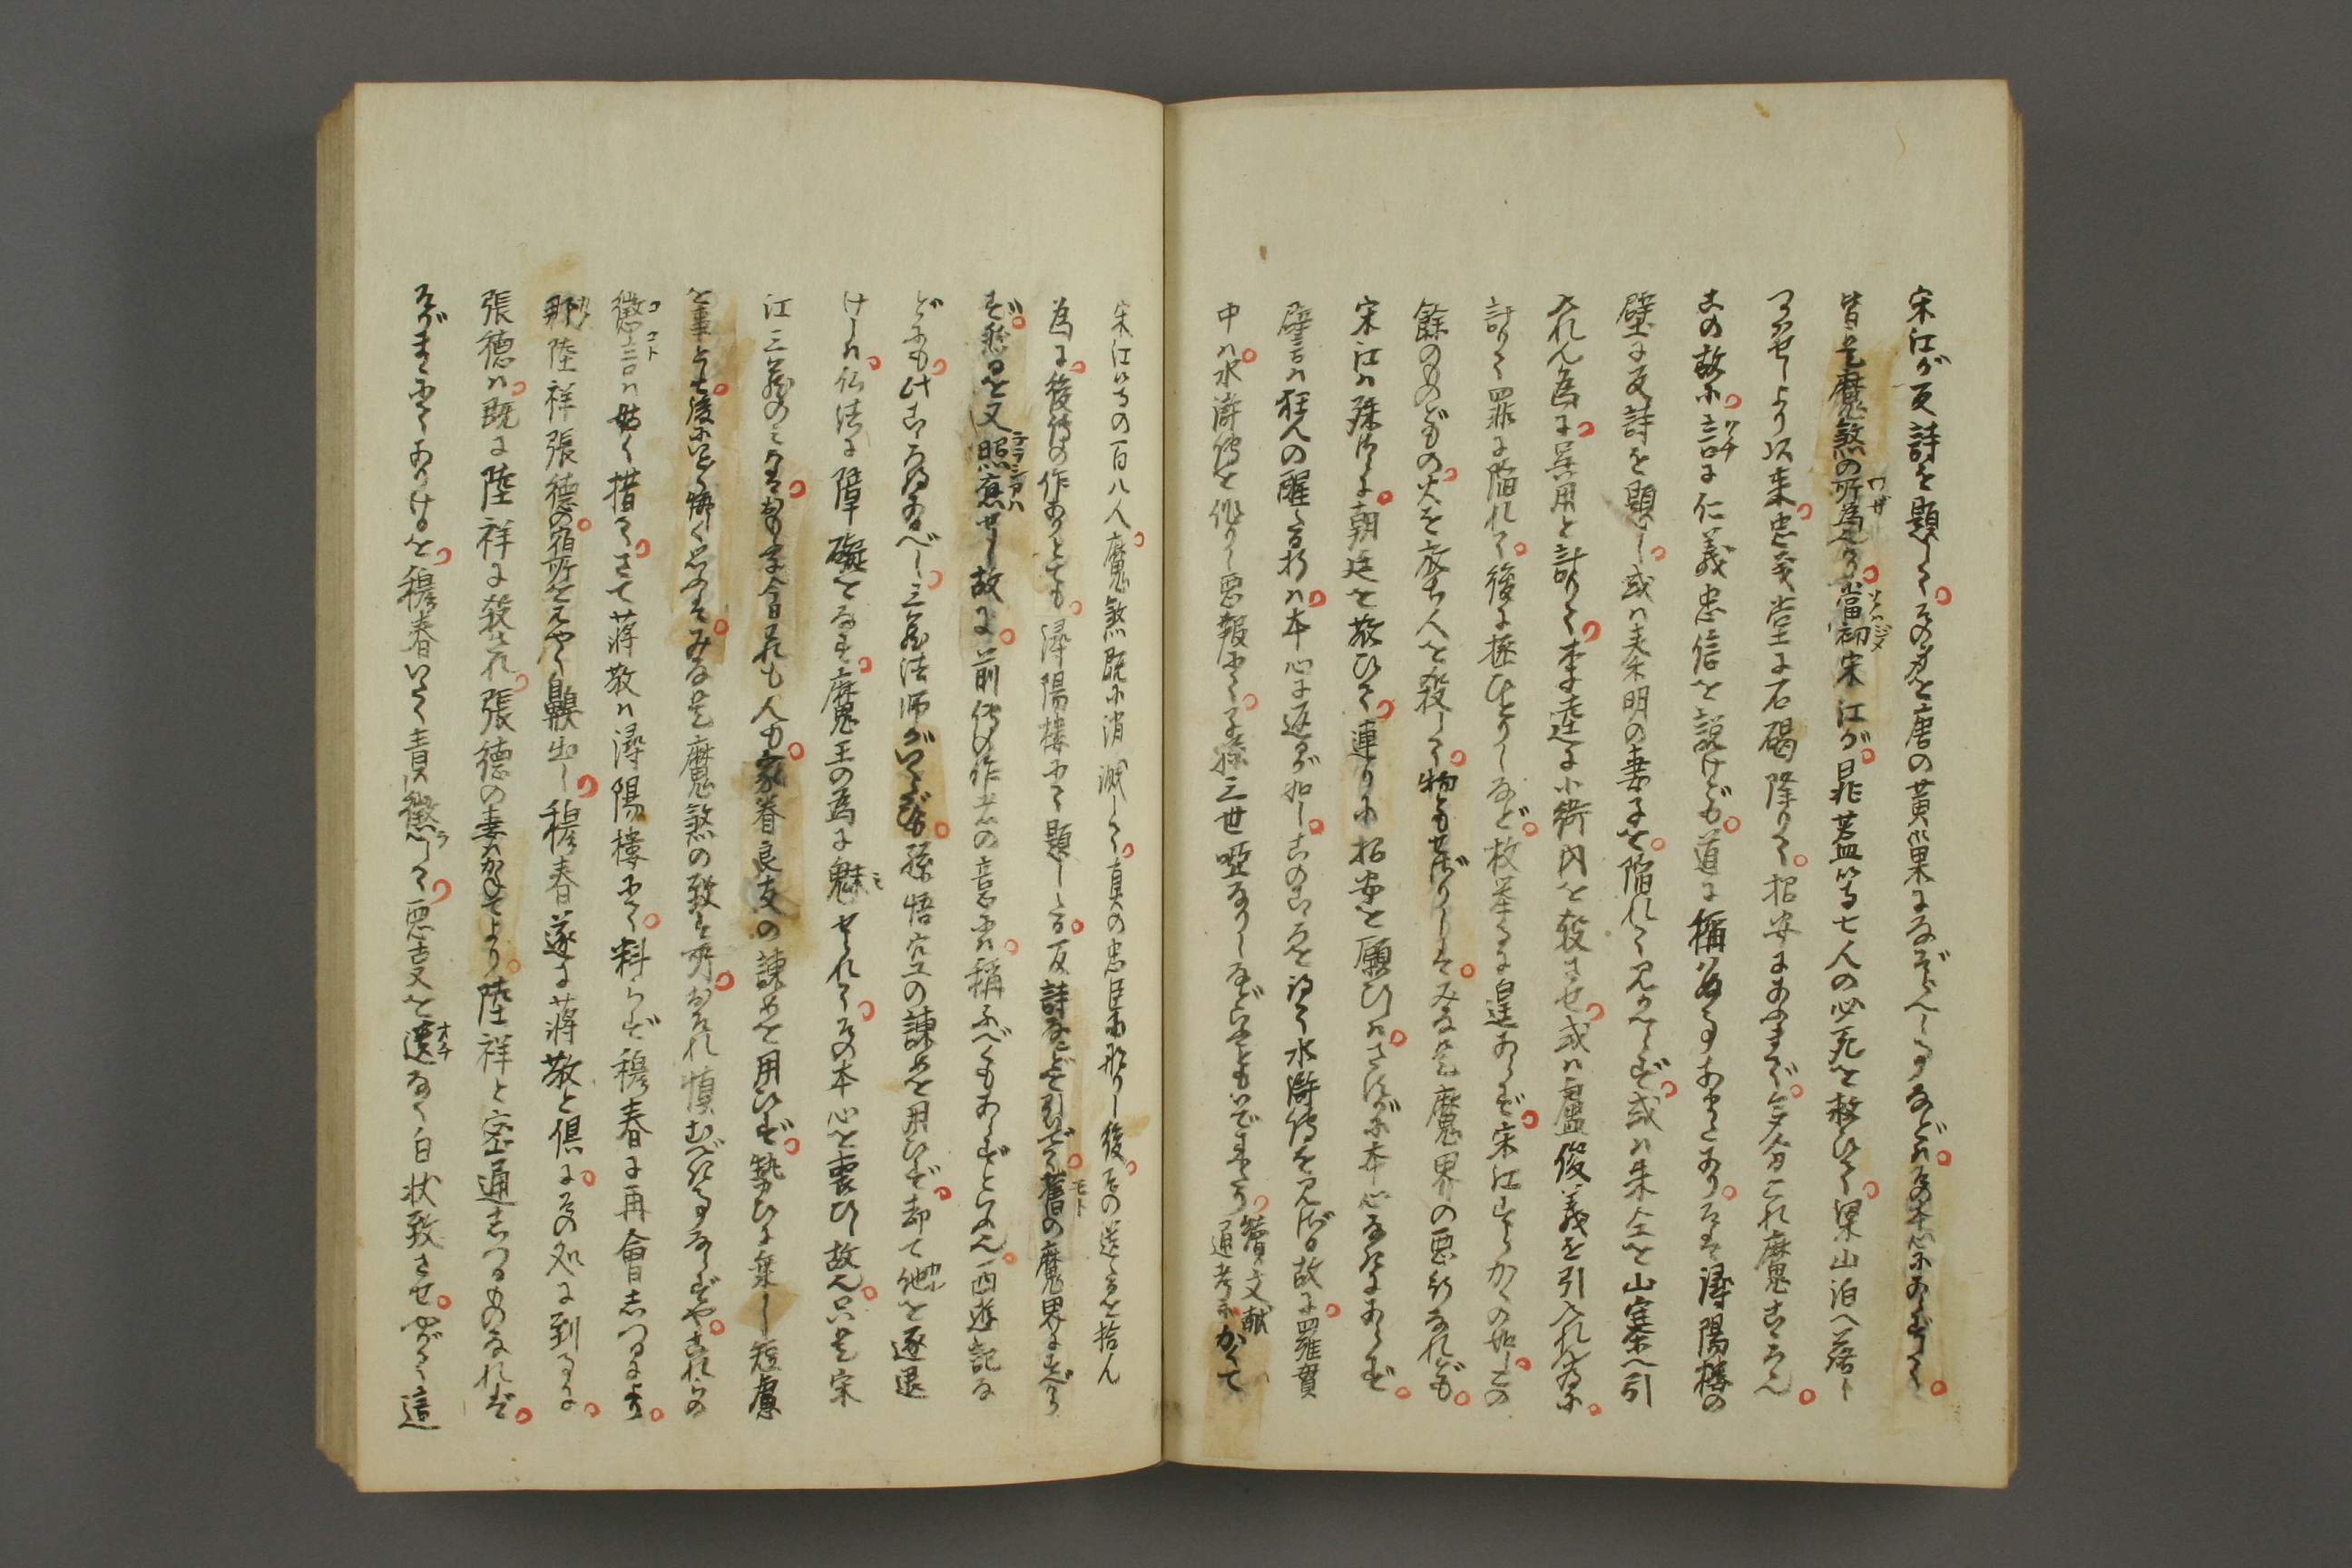 宋江が反詩を題して。その身を唐の黄巣になぞらへしなどは。その本心にあらずして。
皆是魔煞の所為也。當初宋江が。晁蓋等七人の必死を救ひて。梁山泊へ落し
つかはせしより以来。忠義堂に石碣降りて。招安にあふまで。多分これ魔きこん
この故に。口に仁義忠信を説けども。道に稱はぬ事あまたあり。そは潯陽樓の
壁に反詩を題し。或は秦明の妻子を。陥れてかへらず。或は朱仝を山寨へ引
入れん為に。呉用と計りて。李逵に小衙内を殺させ。或は盧俊義を引入れん為に。
計りて罪に陥れて。後に拯ひとりしなど。枚挙るに遑あらず。宋江すらかくの如し。その
餘のものどもの。火を放ち人を殺して。物ともせざりしは。みな是魔界の悪行なれども。
宋江は殊勝に。朝廷を敬ひて。連りに招安を願ひしは。さすがに本心なきにあらず。
譬ば狂人の醒たる折は。本心に返るが如し。このこゝろを得て水滸傳を見ざる故に。羅貫
中は。水滸傳を作りし悪報にて。子孫三世唖なりしなどいふものいできたり。續文献通考にかくて
宋江等の百八人。魔煞既に消滅して。真の忠臣に那りし後。その送るを拾ん
為に。後傳の作ありとても。潯陽樓にて題したる。反詩などを引いでて。舊の魔界にすべり
ず。然るを又照應せし故に。前傳の作者の意には。稱ふべくもあらずといはん。西遊記な
どにも。此こゝろあるべし。三蔵法師がいくたびも。孫悟空の諫めを用ひず。却て他を逐退
けしは。仏法に障礙をなす。魔王の為に魅せられて。その本心を喪ひし故也。只是宋
江三蔵のみならず。和も漢も今も昔も人も。家眷良友の諫めを用ひず。勢ひに乗して短慮
を事とし。後にいたく悔しく思ふは。みな是魔煞の致す所。おそれ慎むべき事ならずや。これらの
懲言は姑く措く。さて蒋敬は潯陽樓にて。料らず穆春に再會しつるにより。
那陸祥張徳の。宿所をはやく聽出し。穆春遂に蒋敬と倶に。その処に到るに。
張徳は。既に陸祥に殺され。張徳の妻はかねてより。陸祥と密通しつるものなれば。
そがまゝにてありけるを。穆春いたく責懲らして。悪事を遺なく白状致させ。やがて這